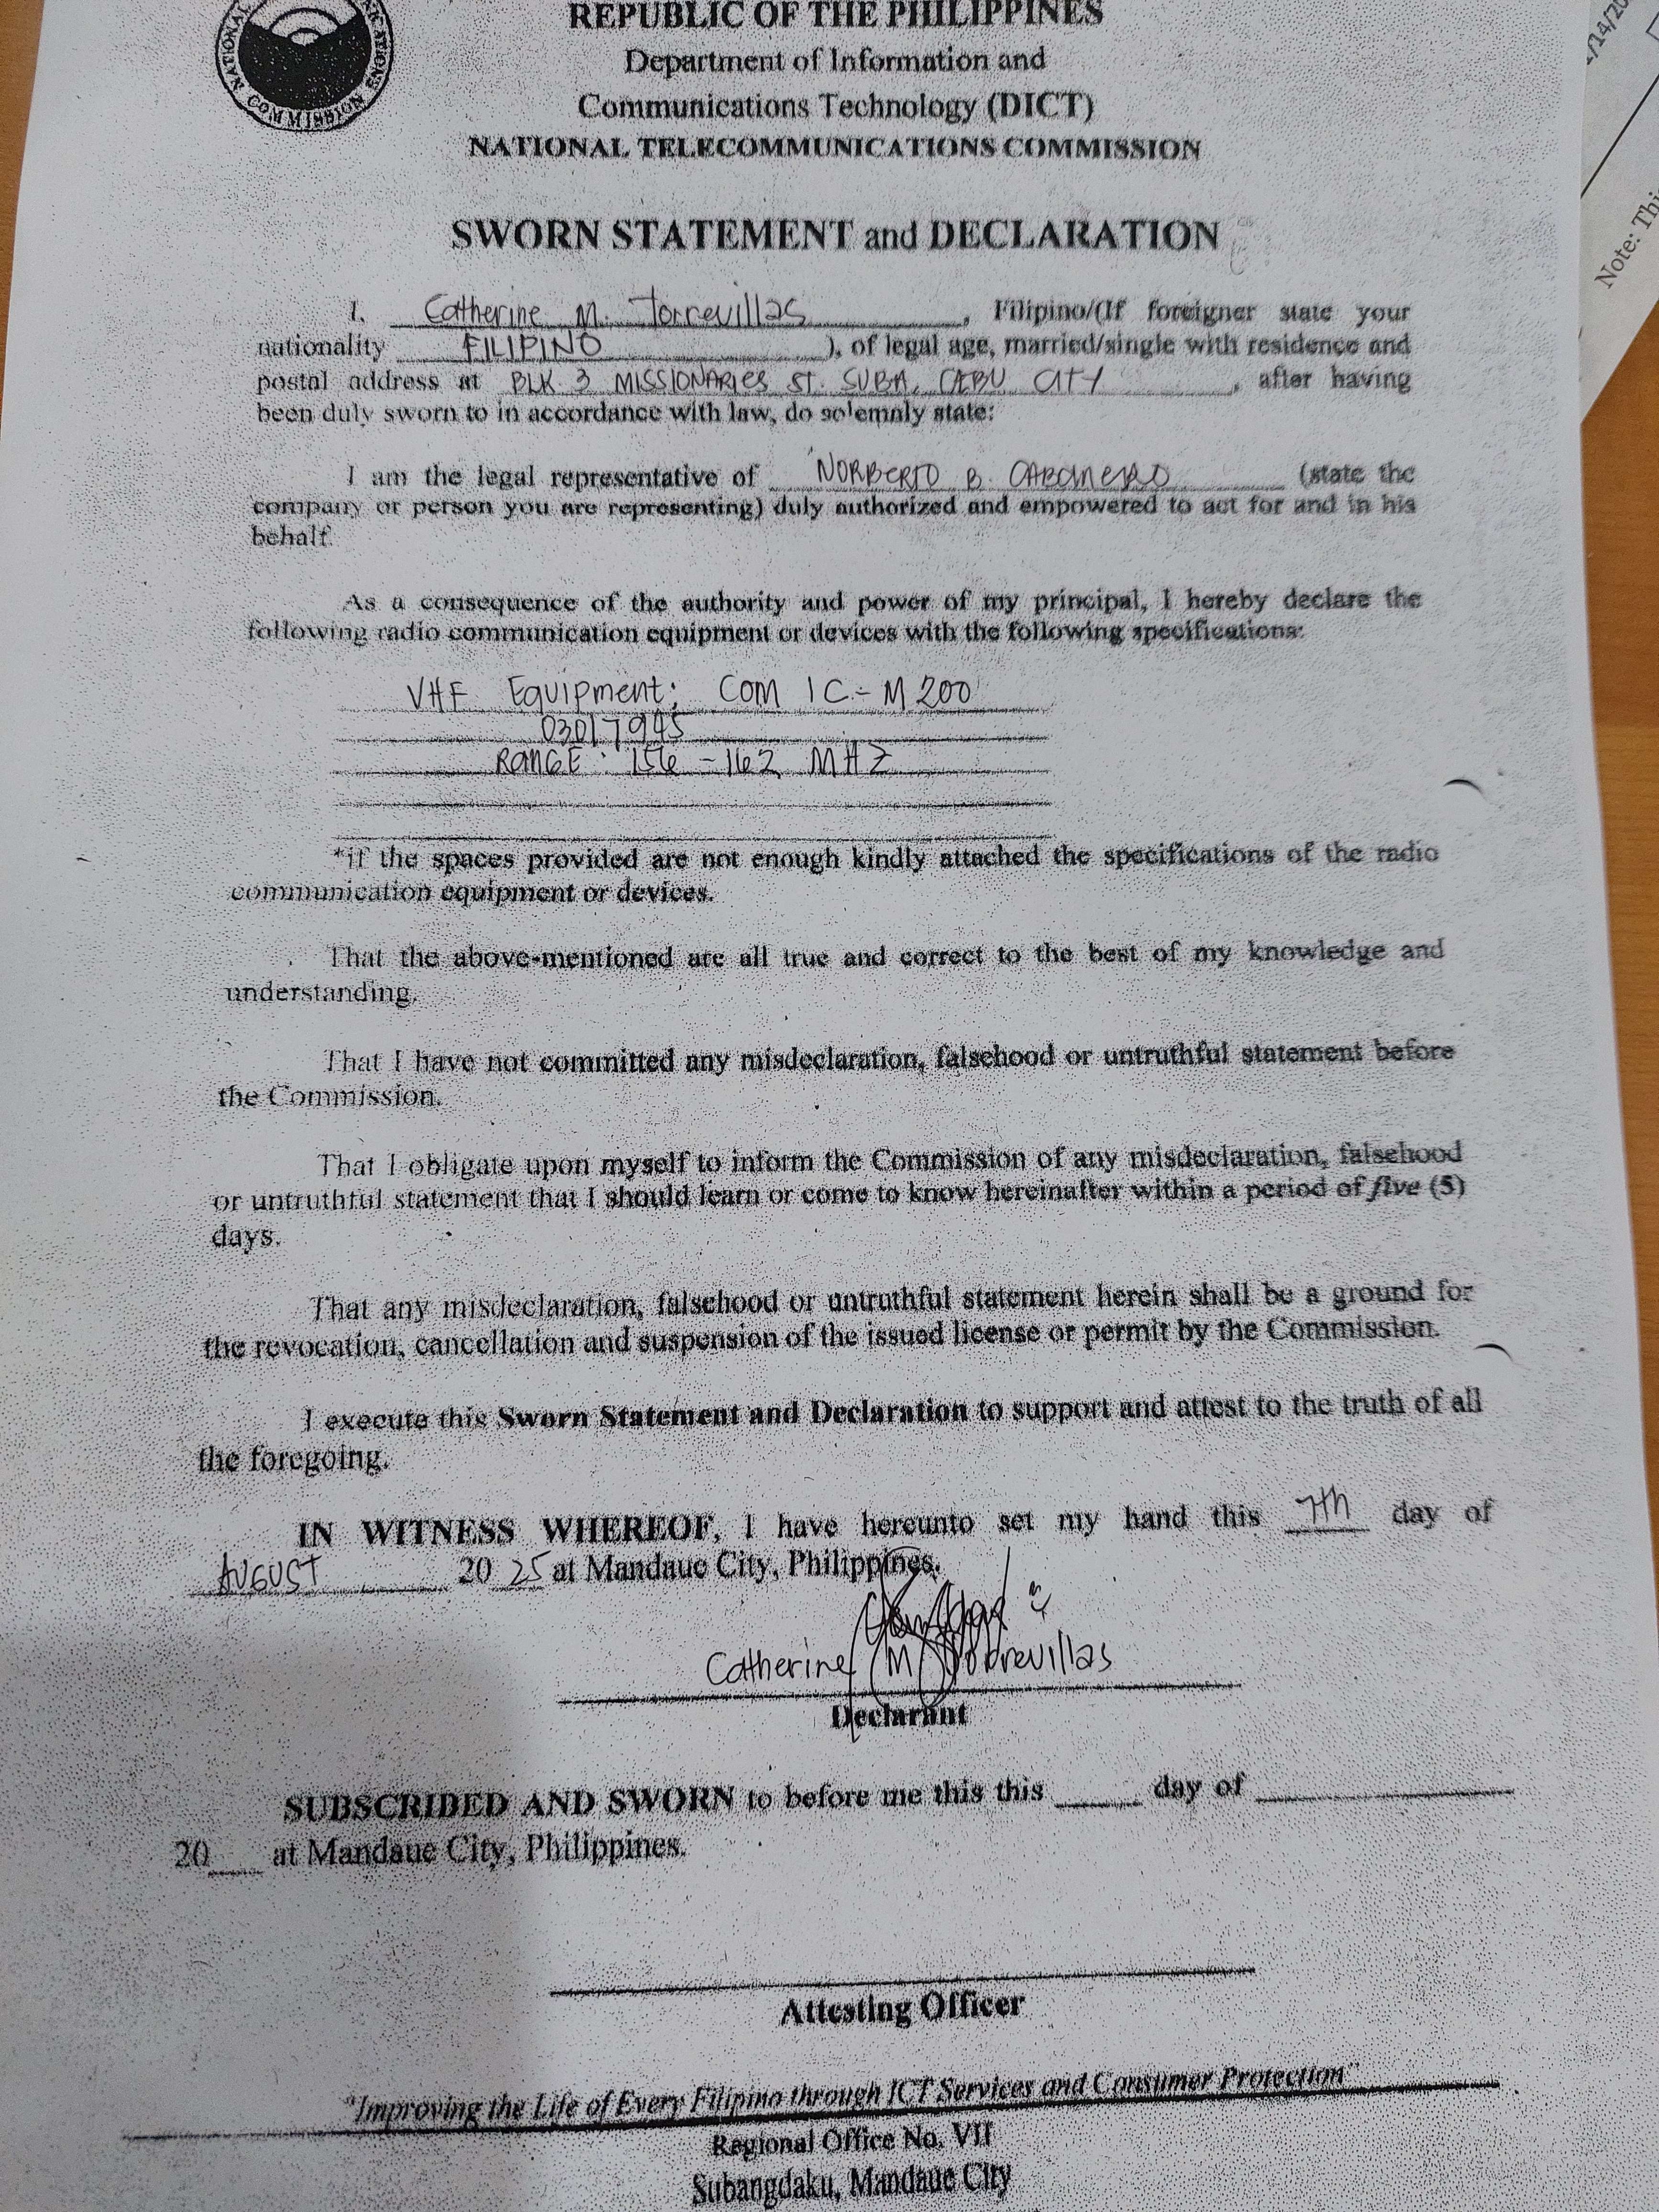 NATIONAL
COMMISSION
REPUBLIC OF THE PHILIPPINES
Department of Information and
Communications Technology (DICT)
NATIONAL TELECOMMUNICATIONS COMMISSION
SWORN STATEMENT and DECLARATION
I, Catherine M. Torrevillas, Filipino/(If foreigner state your
nationality FILIPINO ), of legal age, married/single with residence and
postal address at BLK 3 MISSIONARIES ST. SUBA, CEBU CITY, after having
been duly sworn to in accordance with law, do solemnly state:
I am the legal representative of NORBERTO B. (state the
company or person you are representing) duly authorized and empowered to act for and in his
behalf.
As a consequence of the authority and power of my principal, I hereby declare the
following radio communication equipment or devices with the following specifications:
VHF Equipment: COM IC-M200
03017945
RANGE: 156 - 162 MHZ
*if the spaces provided are not enough kindly attached the specifications of the radio
communication equipment or devices.
That the above-mentioned are all true and correct to the best of my knowledge and
understanding.
That I have not committed any misdeclaration, falsehood or untruthful statement before
the Commission.
That I obligate upon myself to inform the Commission of any misdeclaration, falsehood
or untruthful statement that I should learn or come to know hereinafter within a period of five (5)
days.
That any misdeclaration, falsehood or untruthful statement herein shall be a ground for
the revocation, cancellation and suspension of the issued license or permit by the Commission.
I execute this Sworn Statement and Declaration to support and attest to the truth of all
the foregoing.
IN WITNESS WHEREOF, I have hereunto set my hand this 7th day of
AUGUST 2025 at Mandaue City, Philippines.
Catherine M Torrevillas
Declarant
SUBSCRIBED AND SWORN to before me this this ____ day of ____
20__ at Mandaue City, Philippines.
Attesting Officer
"Improving the Life of Every Filipino through ICT Services and Consumer Protection"
Regional Office No. VII
Subangdaku, Mandaue City
Note: Thi